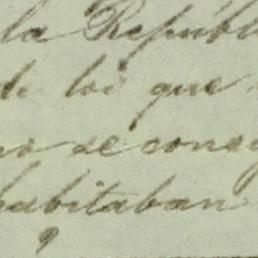 la Repúbl
de los que
no se conse
habitaban
9